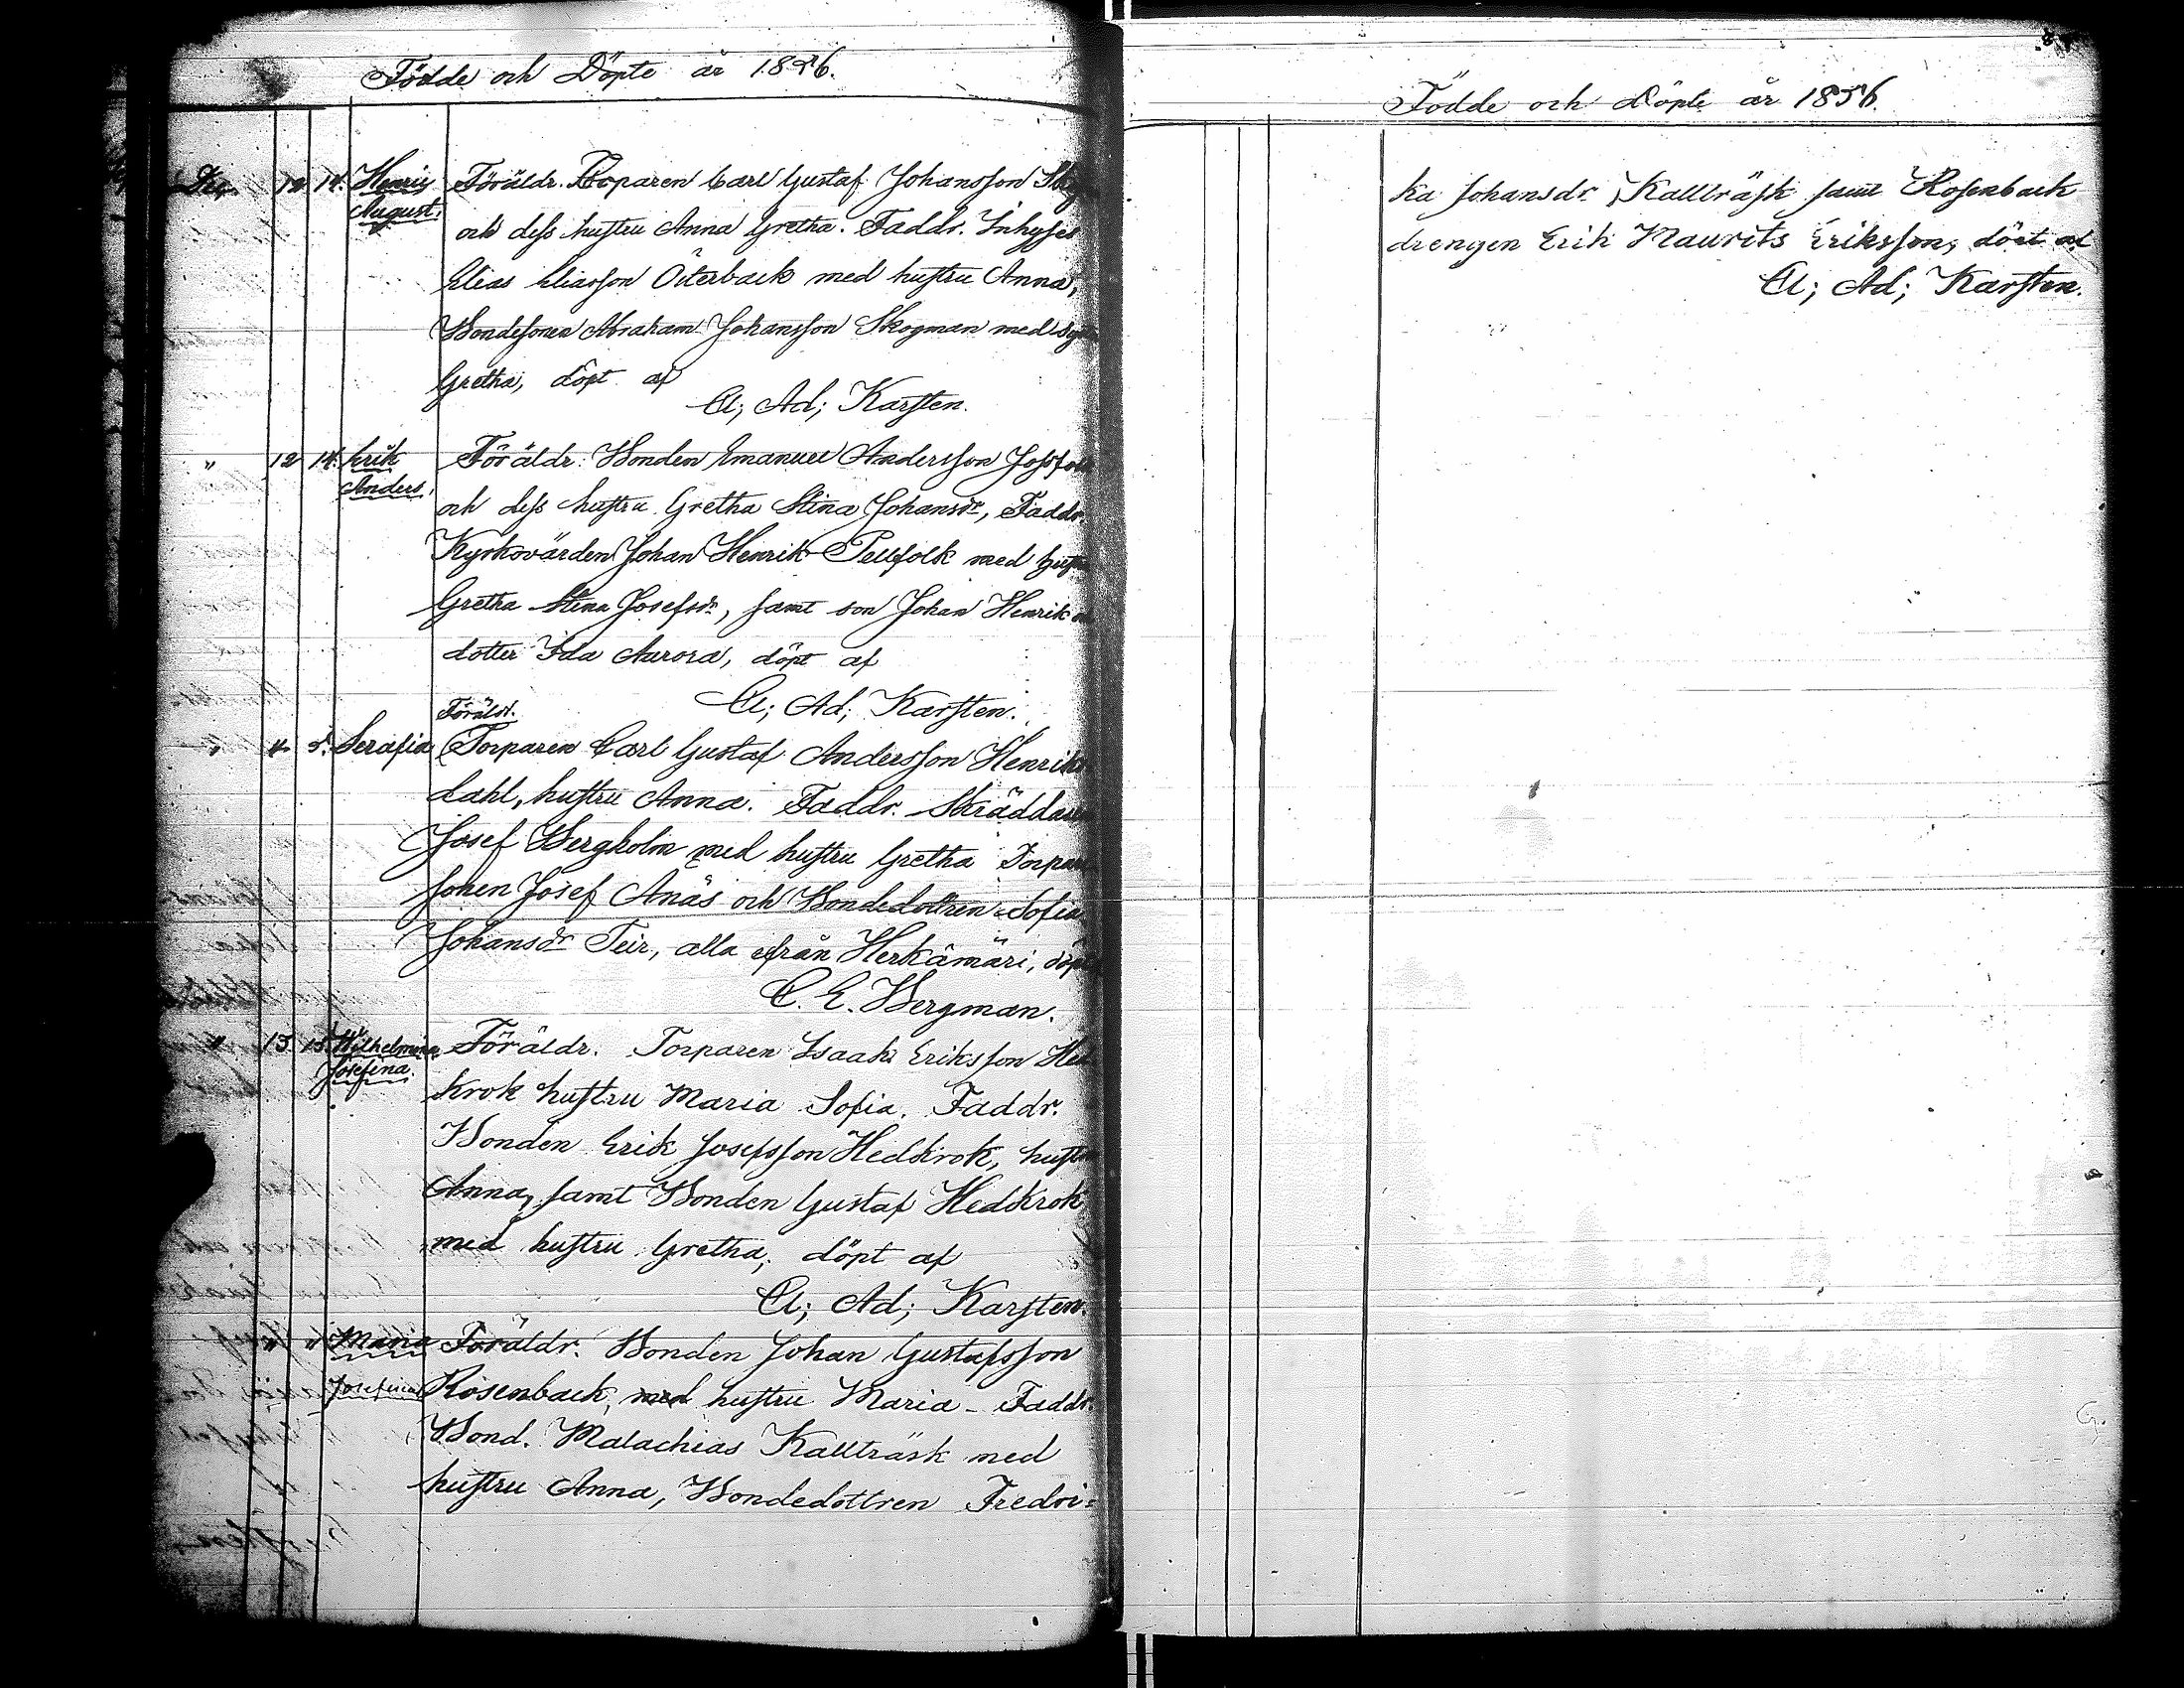 Födde och Döpte år 1856.
Dec. 12 14. Henric Föräldr. Torparen Carl Gustaf Johansson
August. och dess hustru Anna Gretha. Faddr. Inhyses
Elias Eliasson Österback med hustru Anna,
Bondesonen Abraham Johansson Skogman med
Gretha, döpt af
Cl; Ad; Karsten.
" 12 14. Erik Föräldr. Bonden Emanuel Andersson
Anders. och dess hustru Gretha Stina Johansdr, Faddr.
Kyrkovärden Johan Henrik Pellfolk med hustru
Gretha Stina Josefsdr, samt son Johan Henrik
dotter Ida Aurora, döpt af
Cl; Ad; Karsten.
Föräldr.
" 4. 5. Serafia Torparen Carl Gustaf Andersson Henriks
dahl, hustru Anna. Faddr. Skräddaren
Josef Bergholm med hustru Gretha Torpare
sonen Josef Anäs och Bondedottren Sofia
Johansdr Teir, alla från Herkämäri, döpt
C. E. Bergman.
" 15. 15. Wilhelmina Föräldr. Torparen Isaak Eriksson Hed
Josefina. krok hustru Maria Sofia. Faddr.
Bonden Erik Josefsson Hedkrok, hustru
Anna, samt Bonden Gustaf Hedkrok
med hustru Gretha, döpt af
Cl; Ad; Karsten.
" " Maria Föräldr. Bonden Johan Gustafsson
Josefina Rosenback, med hustru Maria - Faddr.
Bond. Malachias Kallträsk med
hustru Anna, Bondedottren Fredri=
Födde och Döpte år 1856.
ka Johansdr. Kallträsk samt Rosenback
drengen Erik Maurits Eriksson, döpt af
Cl; Ad; Karsten.